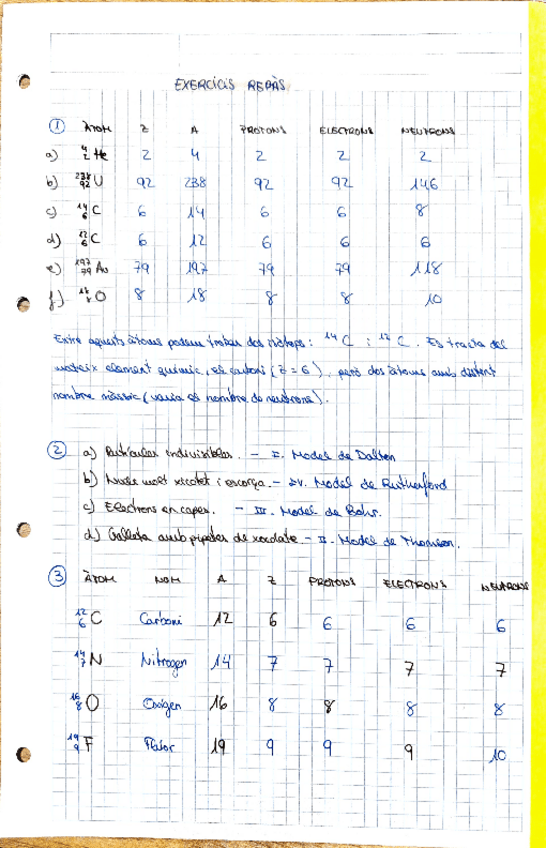 EXERCICIS REPÀS
① ÀTOM Z A PROTONS ELECTRONS NEUTRONS
a) ⁴₂He 2 4 2 2 2
b) ²³⁸₉₂U 92 238 92 92 146
c) ¹⁴₆C 6 14 6 6 8
d) ¹²₆C 6 12 6 6 6
e) ¹⁹⁷₇₉Au 79 197 79 79 118
f) ¹⁸₈O 8 18 8 8 10
Entre aquests àtoms podem trobar dos isòtops: ¹⁴C i ¹²C. Es tracta del
mateix element químic, el carboni (Z=6), però dos àtoms amb distint
nombre màssic (varia el nombre de neutrons).
② a) Partícules indivisibles. - I. Model de Dalton
b) Nucli molt xicotet i escorça. - IV. Model de Rutherford
c) Electrons en capes. - III. Model de Bohr.
d) Galleta amb pipetes de xocolate - II. Model de Thomson.
③ ÀTOM NOM A Z PROTONS ELECTRONS NEUTRONS
¹²₆C Carboni 12 6 6 6 6
¹⁴₇N Nitrogen 14 7 7 7 7
¹⁶₈O Oxigen 16 8 8 8 8
¹⁹₉F Fluor 19 9 9 9 10